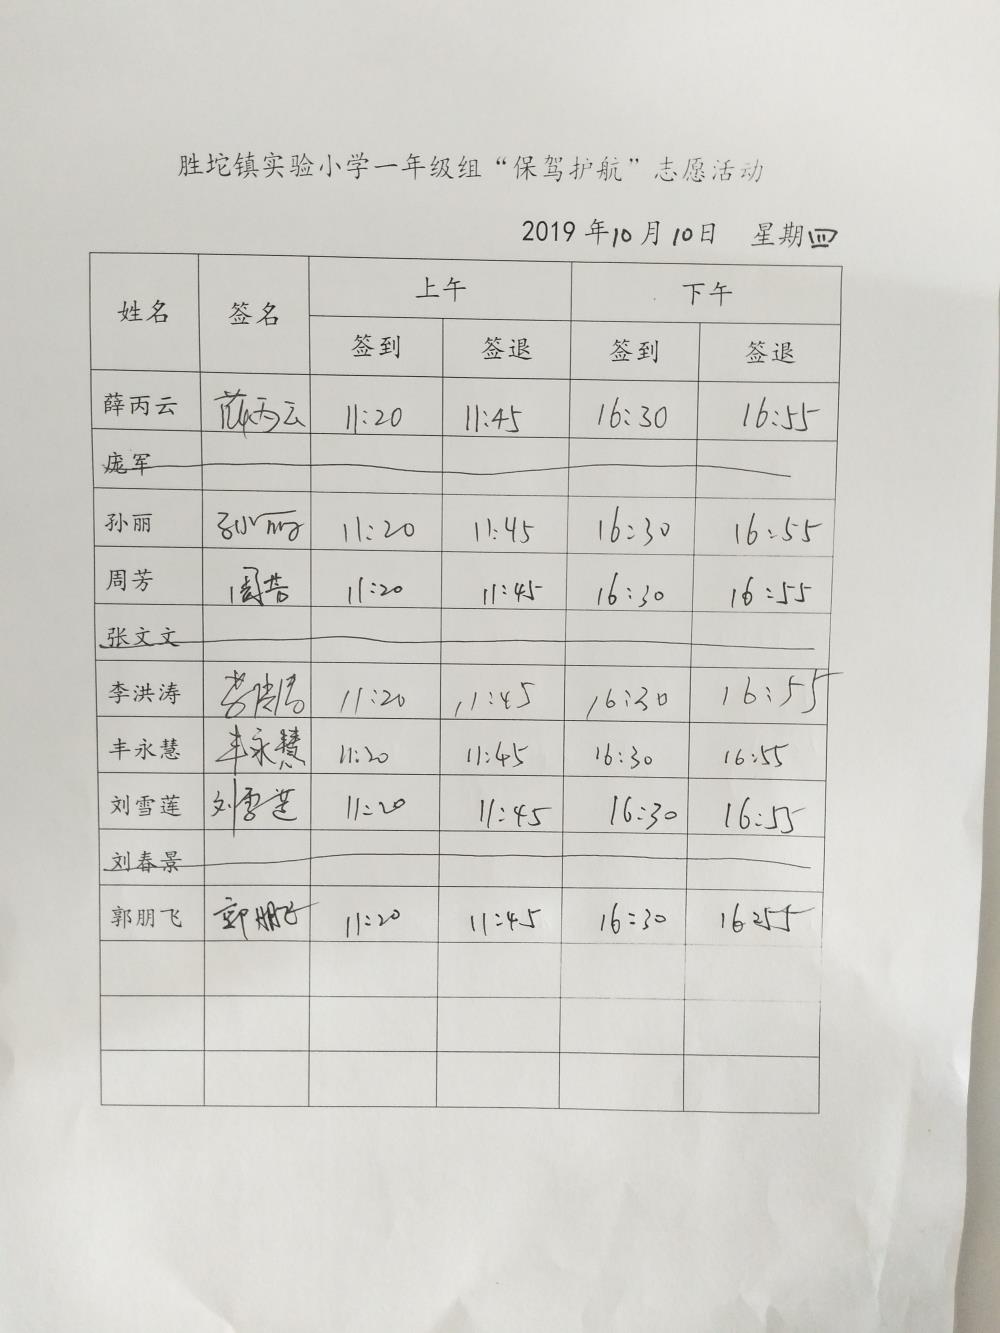 胜坨镇实验小学一年级组“保驾护航”志愿活动
2019 年10月10日 星期四
姓名 签名 上午 下午
签到 签退 签到 签退
薛丙云 薛丙云 11:20 11:45 16:30 16:55
庞军
孙丽 孙丽 11:20 11:45 16:30 16:55
周芳 周芳 11:20 11:45 16:30 16:55
张文文
李洪涛 李洪涛 11:20 11:45 16:30 16:55
丰永慧 丰永慧 11:20 11:45 16:30 16:55
刘雪莲 刘雪莲 11:20 11:45 16:30 16:55
刘春景
郭朋飞 郭朋飞 11:20 11:45 16:30 16:55